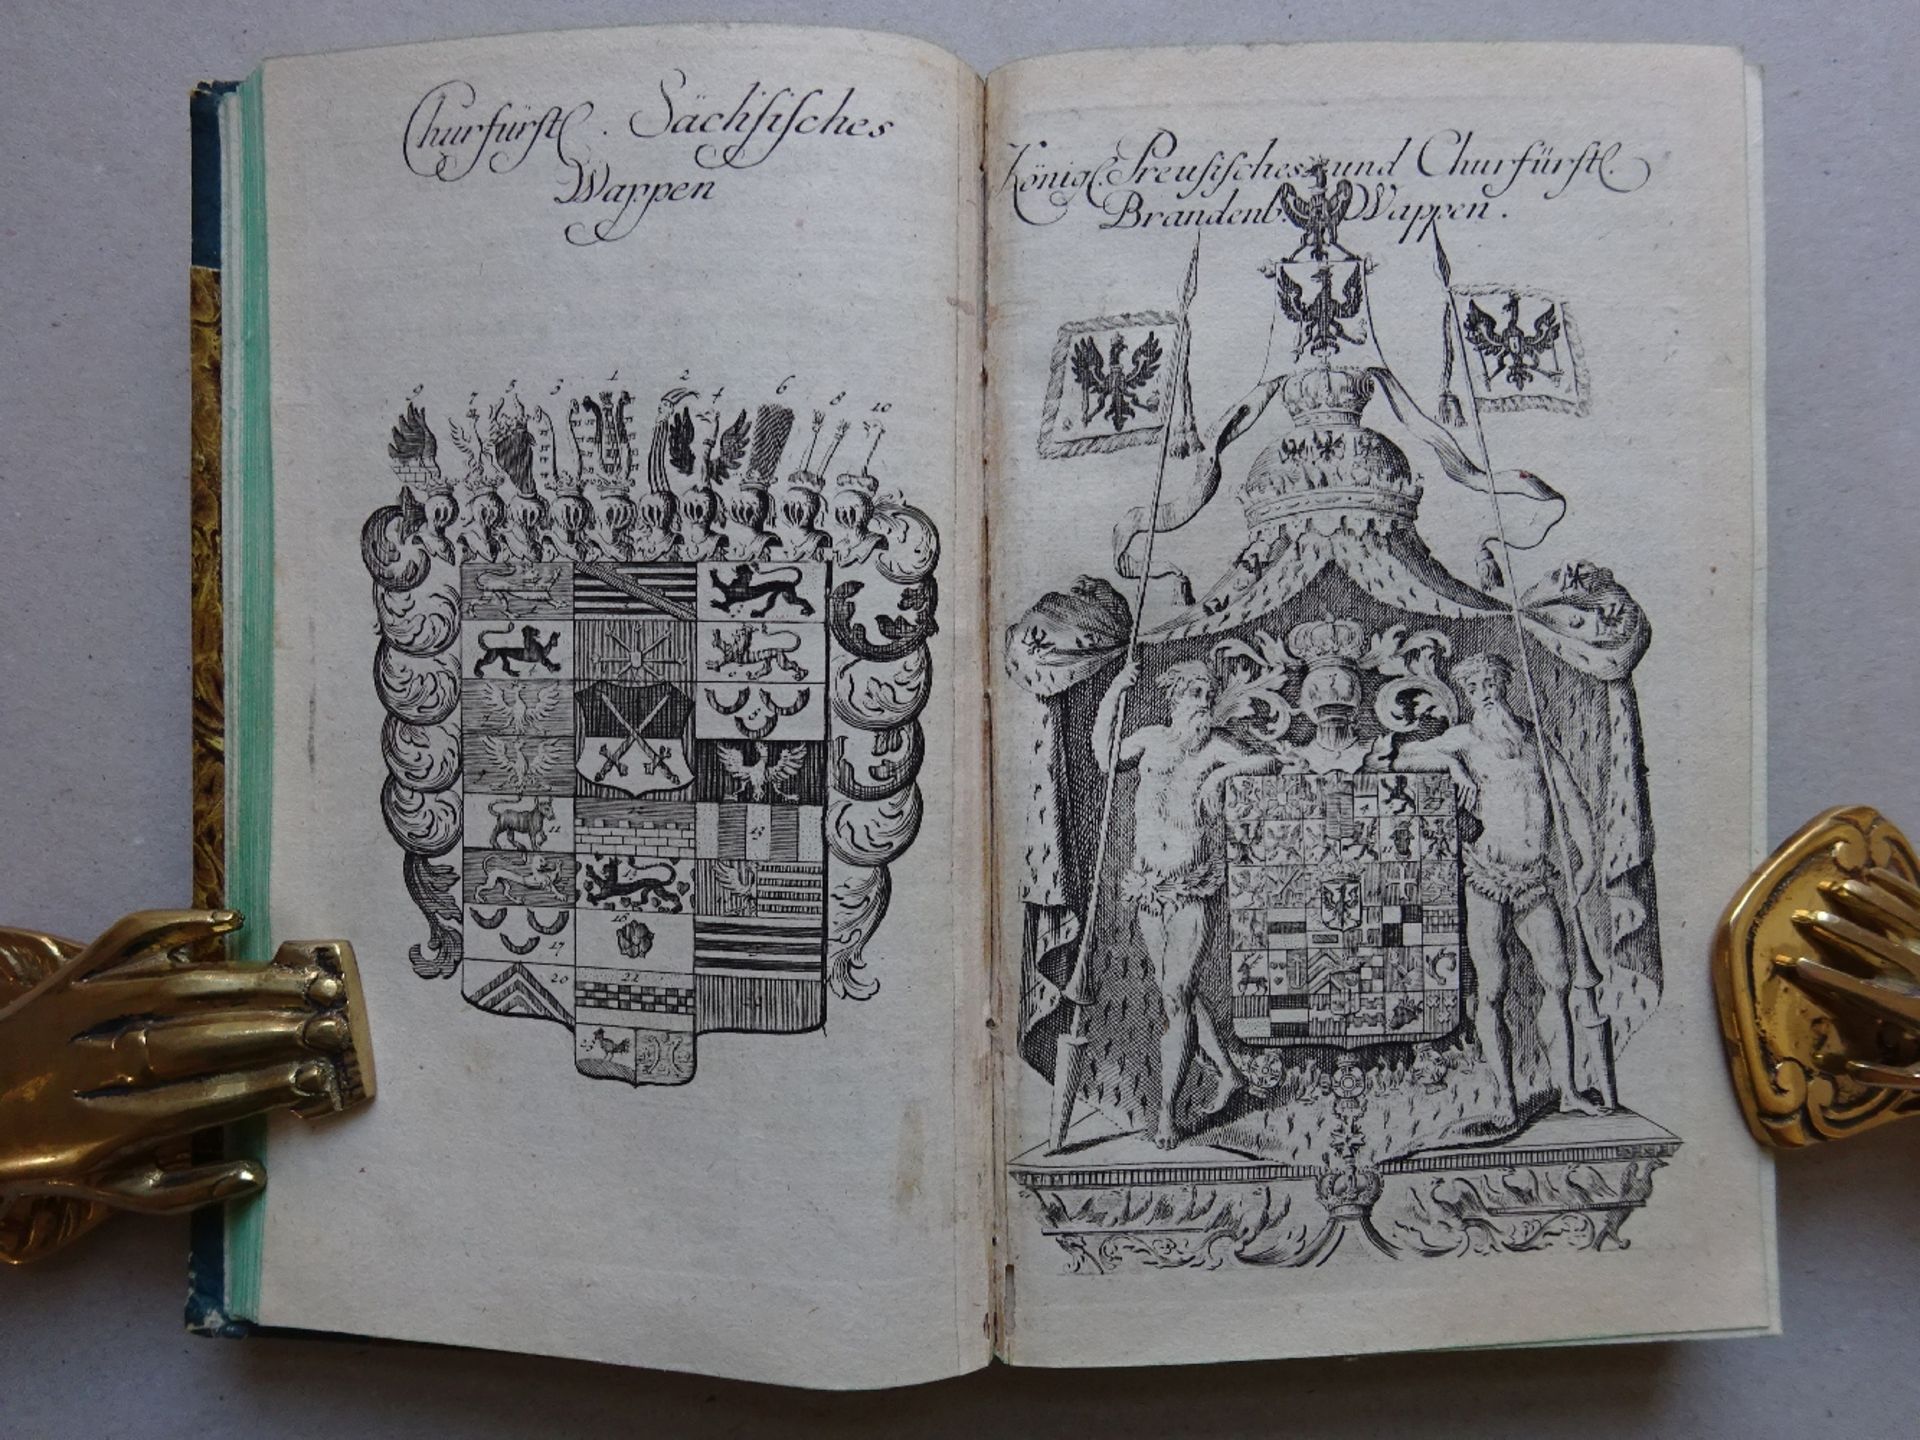 Churfürstl. Sächsisches
Wappen
9 7 5 3 1 2 4 6 8 10
11
13
16
17
20
22
Königl. Preusisches und Churfürstl.
Brandenb. Wappen.